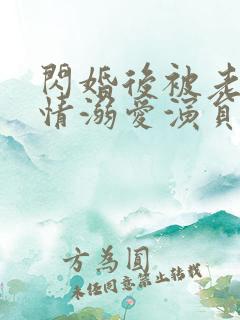 閃婚後被老
情溺愛演員
方為圓
未任同意禁止转載